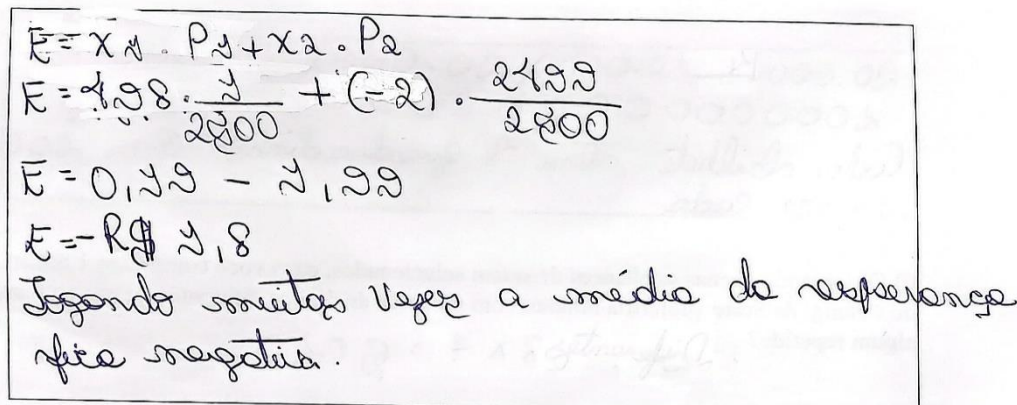 E = X1 . P1 + X2 . P2
E = 498 . 1/2500 + (-2) . 2499/2500
E = 0,19 - 1,99
E = -R$ 1,8
Jogando muitas vezes a média da esperança
fica negativa.